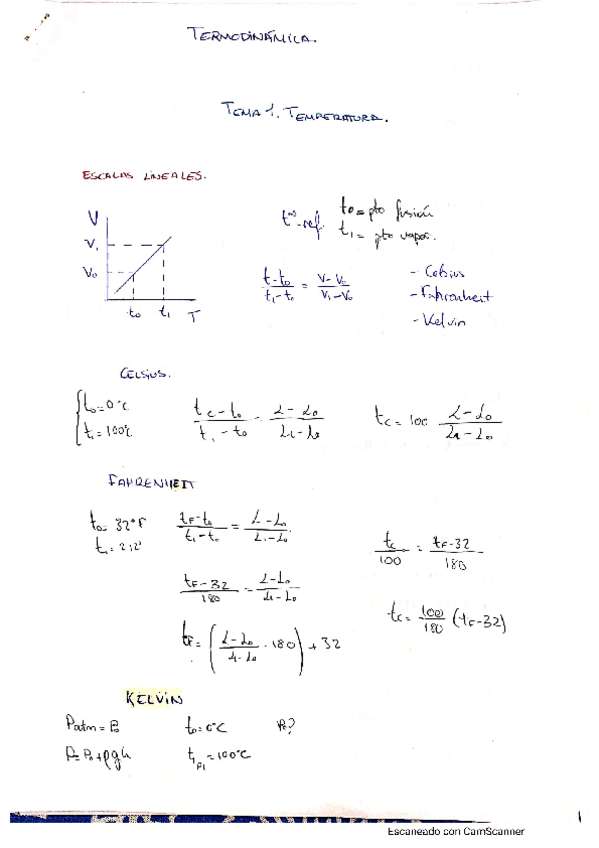 TERMODINÁMICA.
TEMA 1. TEMPERATURA.
ESCALAS LINEALES.
V
V₁
V₀
t₀ t₁ T
t⁰⁰-ref. t₀ = pto fusión
t₁ = pto vapor.
(t-t₀)/(t₁-t₀) = (V-V₀)/(V₁-V₀)
- Celsius
- Fahrenheit
- Kelvin
CELSIUS.
t₀=0°C
t₁=100°C
(tc-t₀)/(t₁-t₀) = (L-L₀)/(L₁-L₀)
tc = 100 (L-L₀)/(L₁-L₀)
FAHRENHEIT
t₀= 32°F
t₁= 212°
(tF-t₀)/(t₁-t₀) = (L-L₀)/(L₁-L₀)
(tF-32)/180 = (L-L₀)/(L₁-L₀)
tF= ((L-L₀)/(L₁-L₀) · 180) + 32
tc/100 = (tF-32)/180
tc= 100/180 (tF-32)
KELVIN
Patm = P₀ t₀=0°C P₀?
P= P₀+ρgh t₁,P₁ =100°C
1
Escaneado con CamScanner